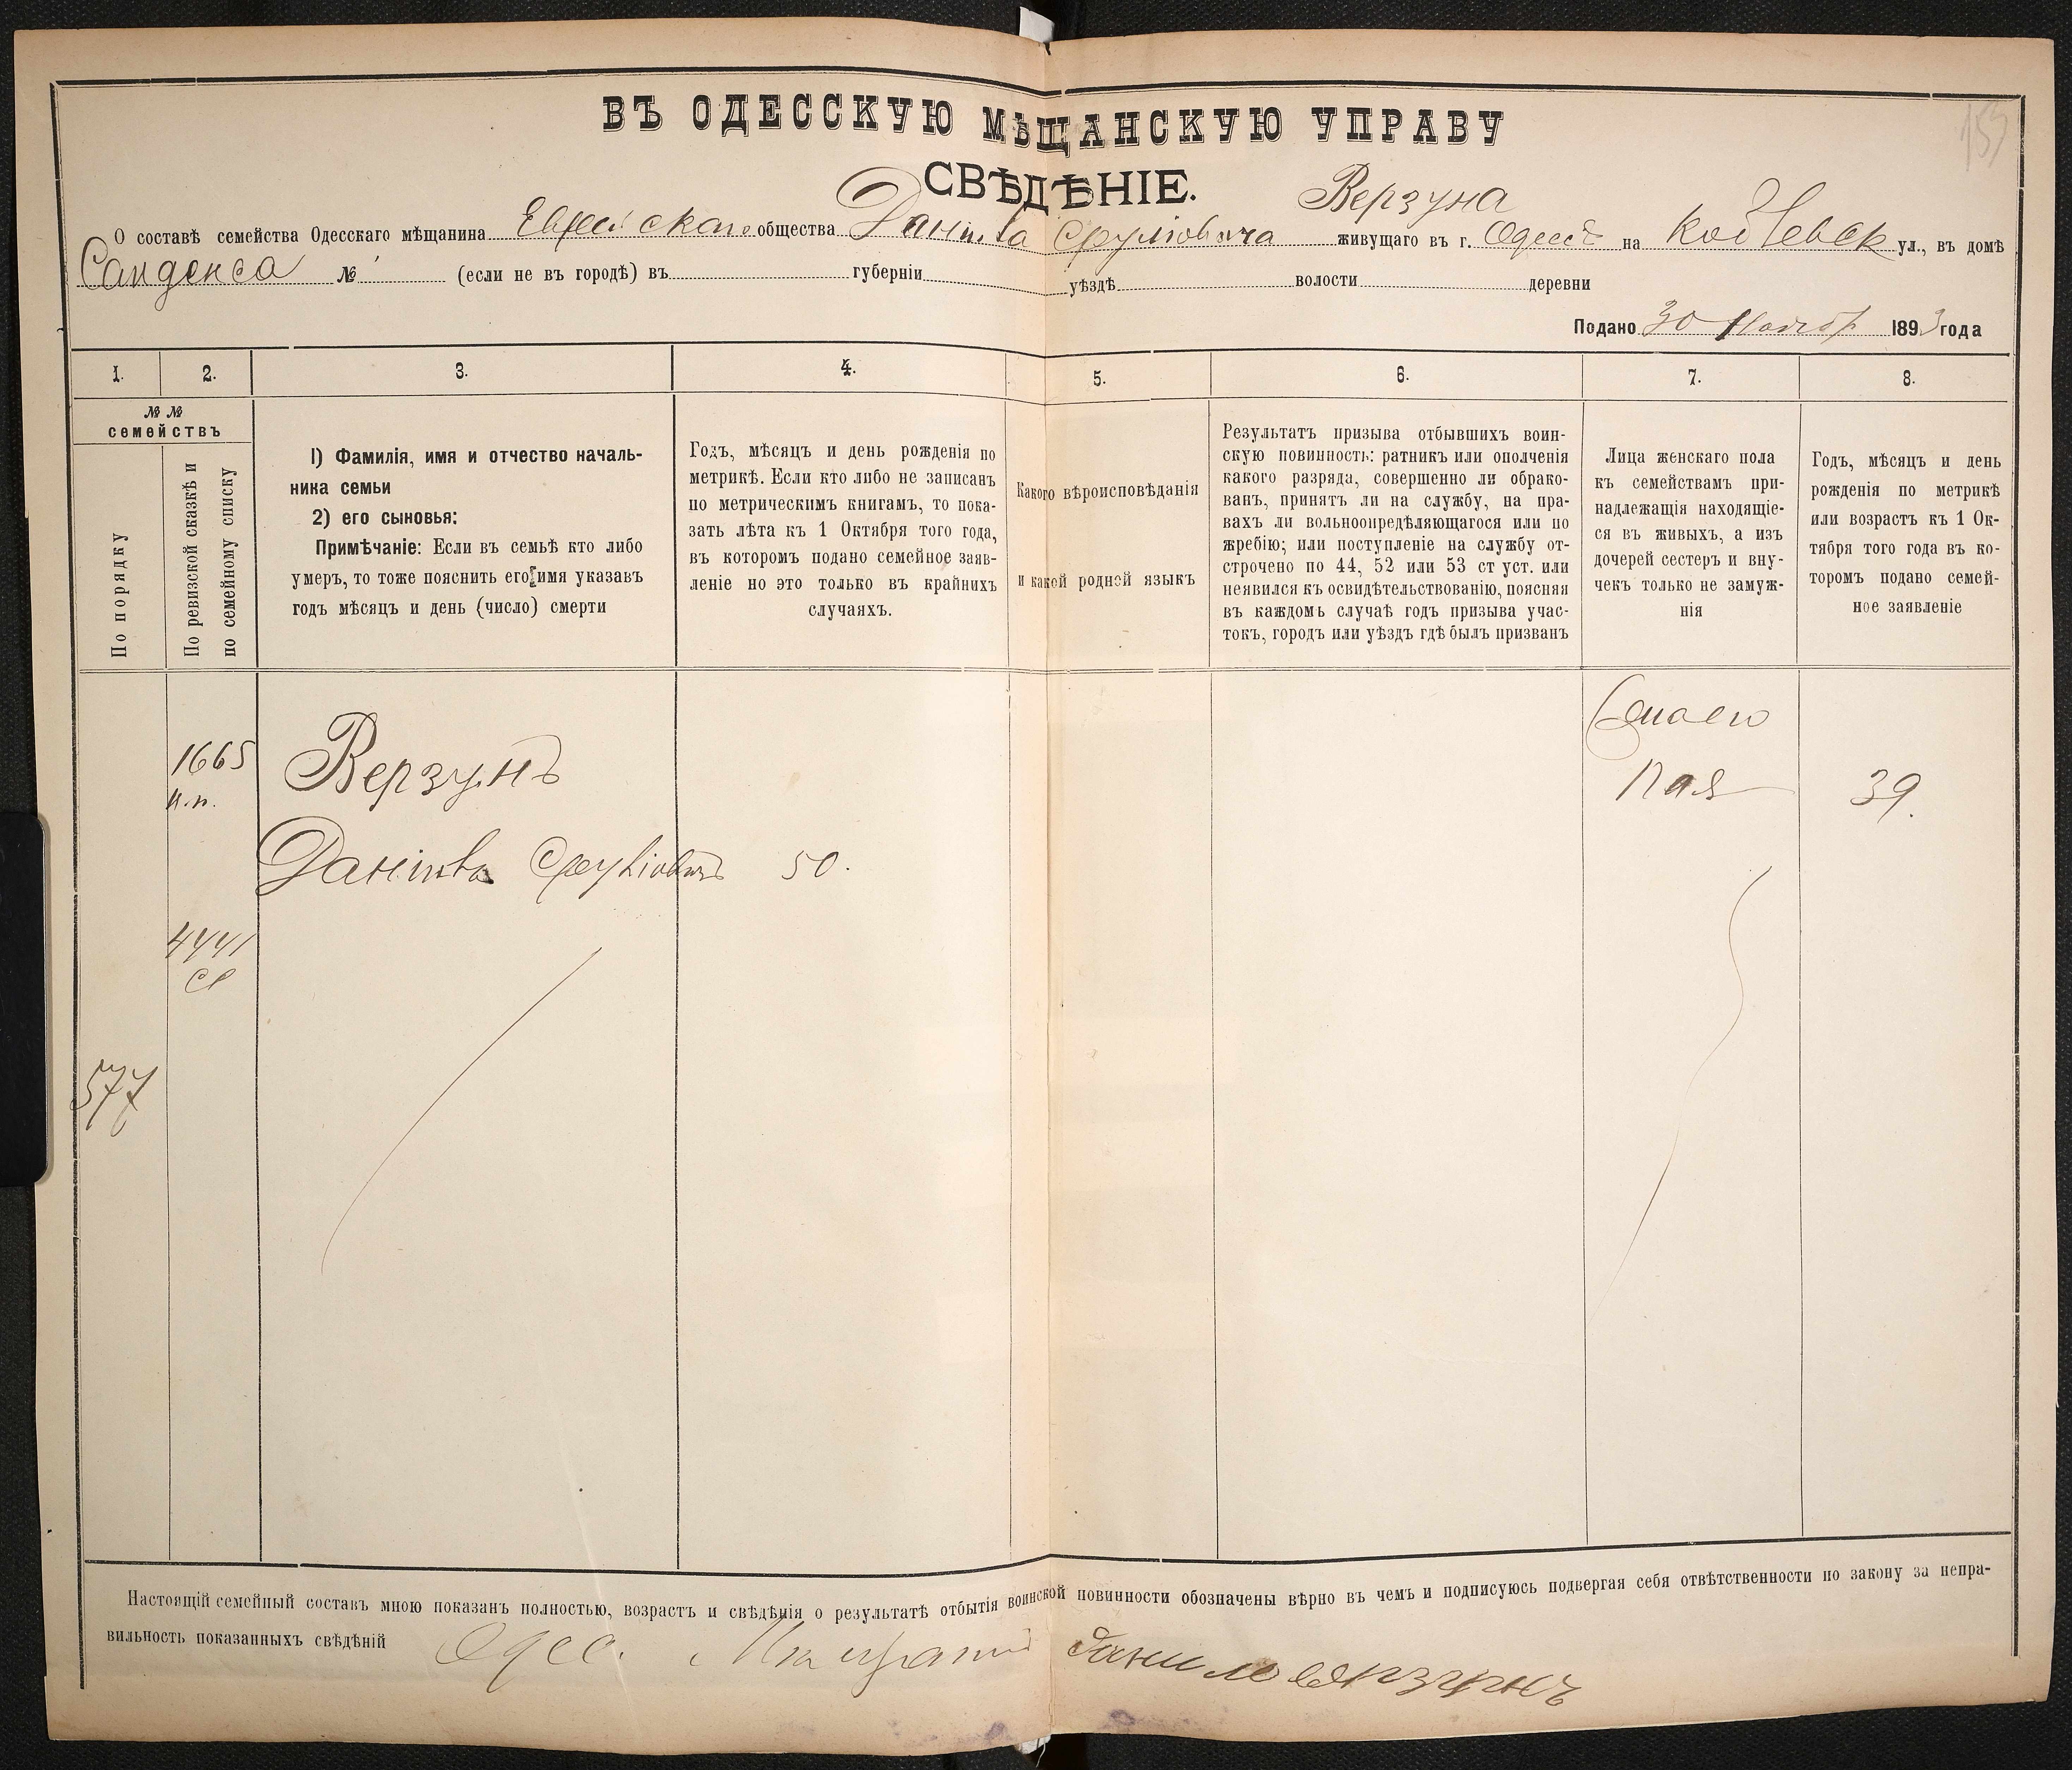 ВЪ ОДЕССКУЮ МѢЩАНСКУЮ УПРАВУ
СВѢДѢНІЕ.
Верзуна
О составѣ семейства Одесскаго мѣщанина Еврейскаго общества Данила Сруліовича живущаго въ г. Одессѣ на ул., въ домѣ
№ (если не въ городѣ) въ губерніи уѣздѣ волости деревни
Подано 30 Ноября 1893 года
1. 2. 3. 4. 5. 6. 7. 8.
№ №
семействъ
По порядку
По ревизской сказкѣ и
по семейному списку
1) Фамилія, имя и отчество началь-
ника семьи
2) его сыновья:
Примѣчаніе: Если въ семьѣ кто либо
умеръ, то тоже пояснить его имя указавъ
годъ мѣсяцъ и день (число) смерти
Годъ, мѣсяцъ и день рожденія по
метрикѣ. Если кто либо не записанъ
по метрическимъ книгамъ, то пока-
зать лѣта къ 1 Октября того года,
въ которомъ подано семейное заяв-
леніе но это только въ крайнихъ
случаяхъ.
Какого вѣроисповѣданія
и какой родной языкъ
Результатъ призыва отбывшихъ воин-
скую повинность: ратникъ или ополченія
какого разряда, совершенно ли обрако-
ванъ, принятъ ли на службу, на пра-
вахъ ли вольноопредѣляющагося или по
жребію; или поступленіе на службу от-
строчено по 44, 52 или 53 ст уст. или
неявился къ освидѣтельствованію, поясняя
въ каждомъ случаѣ годъ призыва учас-
токъ, городъ или уѣздъ гдѣ былъ призванъ
Лица женскаго пола
къ семействамъ при-
надлежащія находящіе-
ся въ живыхъ, а изъ
дочерей сестеръ и вну-
чекъ только не замуж-
нія
Годъ, мѣсяцъ и день
рожденія по метрикѣ
или возрастъ къ 1 Ок-
тября того года въ ко-
торомъ подано семей-
ное заявленіе
1665
Верзунъ
39.
Данила Сруліовичъ 50.
4441
577
Настоящій семейный составъ мною показанъ полностью, возрастъ и свѣдѣнія о результатѣ отбытія воинской повинности обозначены вѣрно въ чемъ и подписуюсь подвергая себя отвѣтственности по закону за непра-
вильность показанныхъ свѣдѣній Одес.